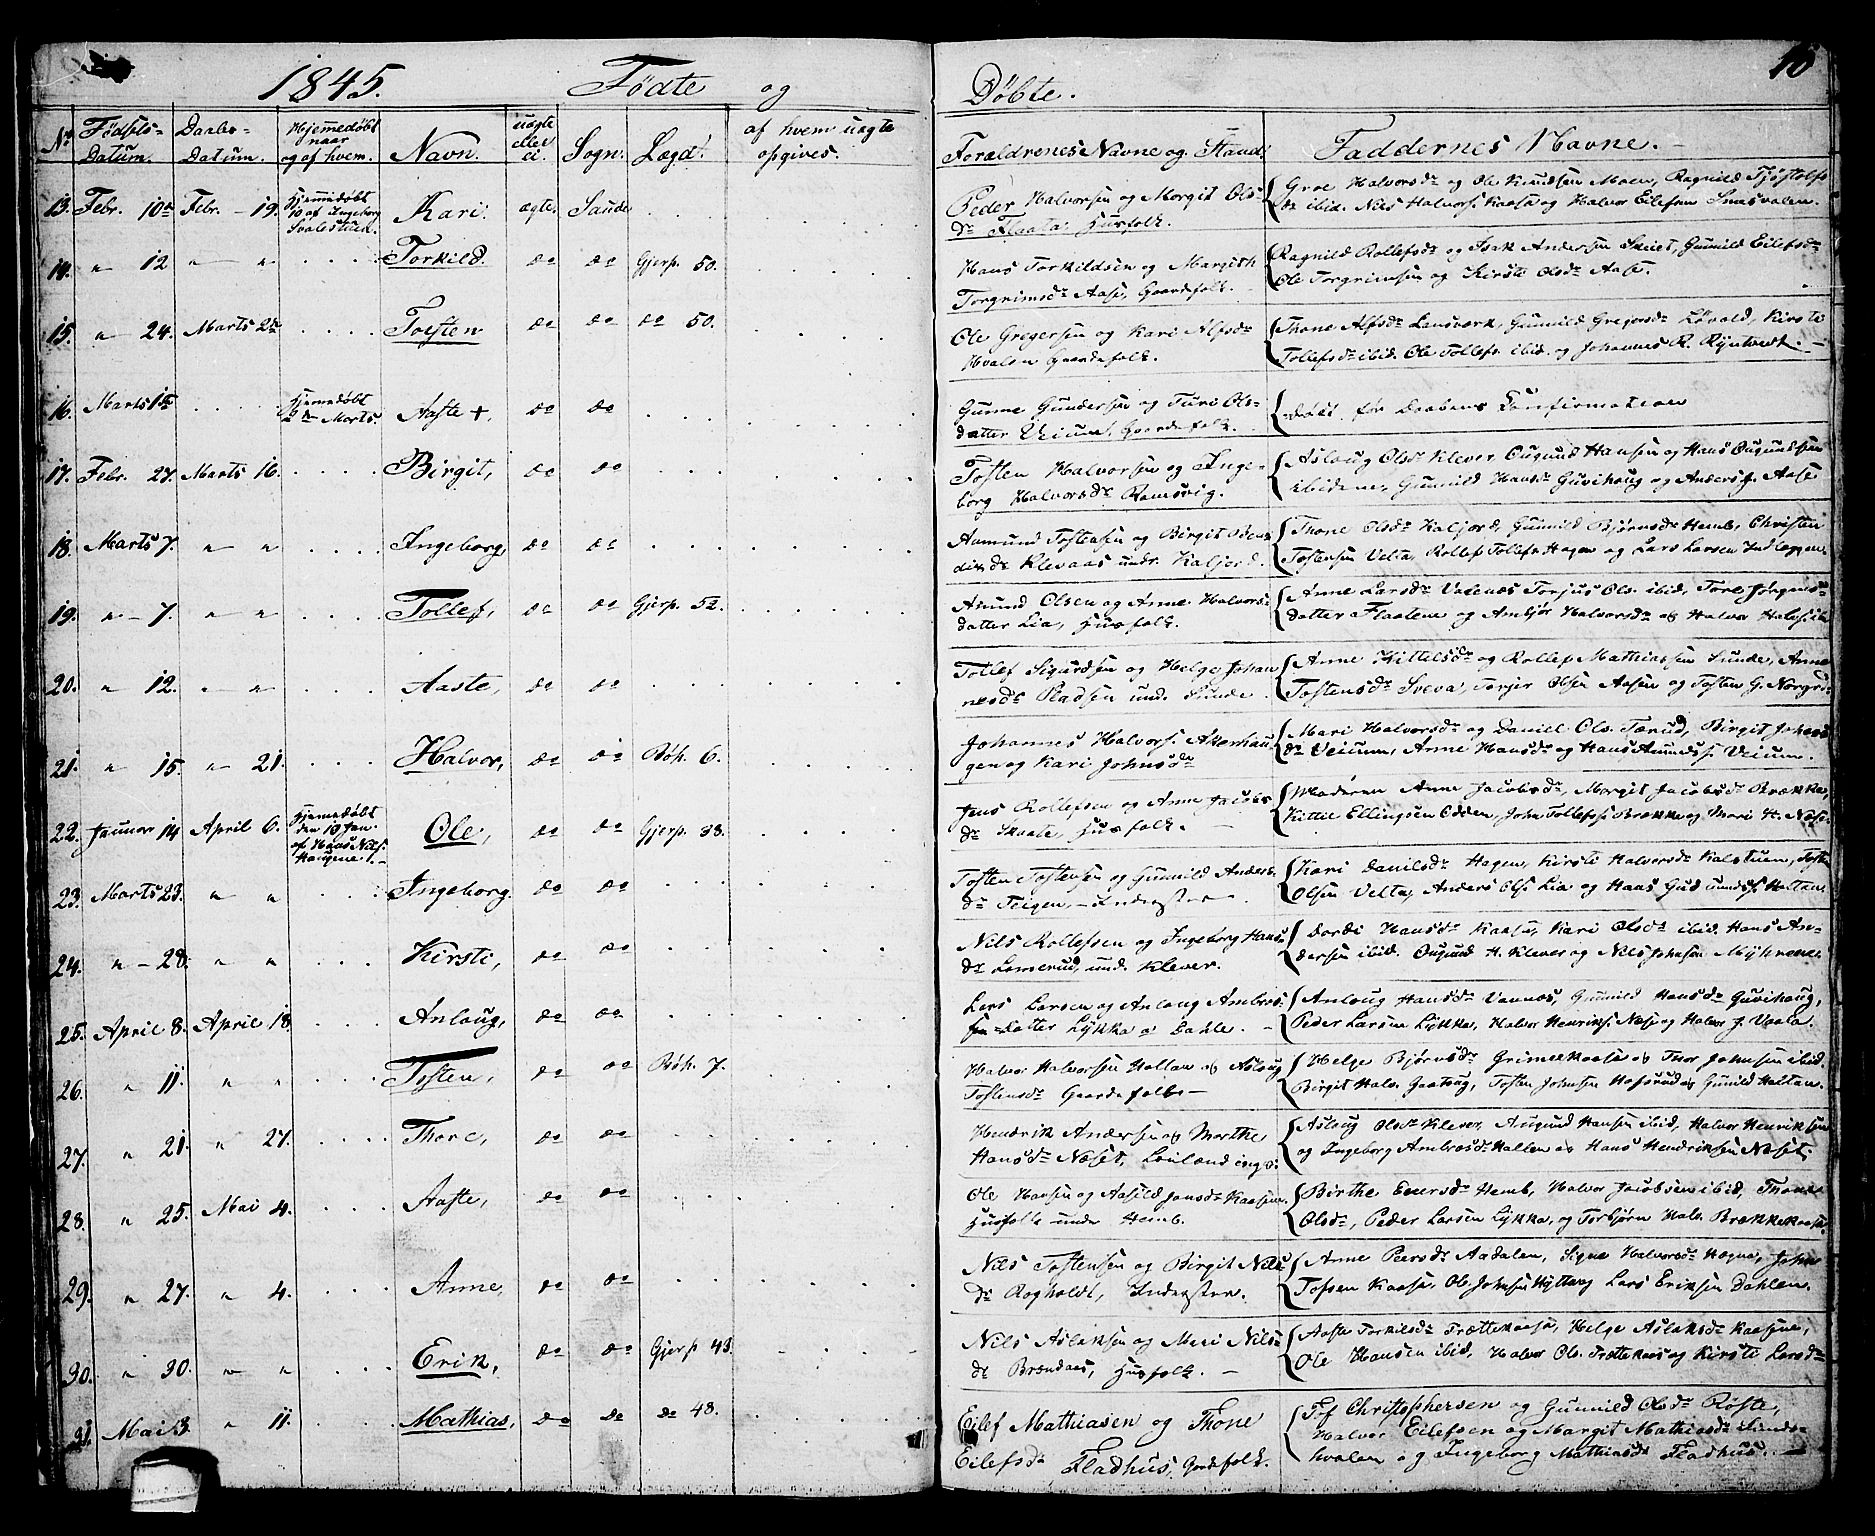 1845. Fødte og Døbte. 16
No Fødsels= Datum. Daabs= Datum. Hjemmedøbt naar og af hvem. Navn. uægte eller ei. Sogn. Lægd. af hvem uægte opgives. Forældrenes Navne og Stand. Faddernes Navne.
13. Febr. 10de Febr. 19. Hjemmedøbt 10 af Ingeborg Svalestuen. Kari. ægte. Saude
Peder Halvorsen og Margit Ols=
dr Flaata, Husfolk.
Groe Halvorsdr og Ole Knudsen Moen, Ragnild Tjøstolfs
dr ibid. Nils Halvors. Kaasa og Halvor Eilefsen
14. " 12 " " Torkild. do do Gjerp. 50.
Hans Torkildsen og Margith
Torgrimsdr Aase, Gaardefolk.
Ragnild Rollefsdr og Isak Andersen Skiet, Gunild Eilefsdr
Ole Torgrimsen og Kirsti Olsdr Aase.
15. " 24. Marts 2den Tosten do do do 50.
Ole Gregersen og Kari Alfsdr
Hvalen Gaardefolk.
Thone Alfsdr Lansverk, Gunild Gregersdr Løvald, Kirsti
Tollefsdr ibid. Ole Tollefs. ibid. og Johannes R. Rÿntvedt.
16. Marts 1ste Hjemmedøbt 2den Marts. Aaste +, do do
Gunne Gundersen og Turi Ols=
datter Veium, Gaardefolk.
død før Daabens Confirmation
17. Febr. 27. Marts 16. Birgit, do do
Tosten Halvorsen og Inge=
borg Halvorsdr Ramsvig.
Aslaug Olsdr Klever, Ougund Hansen og Hans Ougundsen
ibidem, Gunnild Hansdr Guvihaug og Anders J. Aase
18. Marts 7. " " Ingeborg, do do
Aamund Tostensen og Birgit Ben=
ditsdr Klevaas undr. Kaljord.
Thone Olsdr Kaljord, Gunild Bjørnsdr Hemb, Christen
Tostensen Velta, Rollef Tollefs. Hagen og Lars Larsen
19. " 7. " " Tollef, do do Gjerp. 52.
Amund Olsen og Anne Halvors=
datter Lia, Husfolk.
Anne Larsdr Valenæs Torjus Ols. ibid, Tore Jørgens=
datter Flaatene og Halvorsdr og Halvor
20. " 12. " " Aaste, do do
Tollef Sigurdsen og Helge Johan
nesdr Pladsen und. Sunde.
Anne Kittelsdr og Rollef Mathiassen Sunde, Anne
Tostensdr Sveva, Torjer Olsen Aasen og Tosten G.
21. " 15. " 21. Halvor, do do Bøh. 6.
Johannes Halvors. Akerhau
gen og Kari Johnsdr
Mari Halvorsdr og Daniel Ols. Terud, Birgit Johns
dr Veium, Anne Hansdr og Hans Amunds. Veium.
22. Januar 14 April 6. Hjemmedøbt den 19 Jan. af Hans Nils. Haugene. Ole, do do Gjerp. 38.
Jens Rollefsen og Anne Jacobs
dr Skaate, Husfolk.
Moderen Anne Jacobsdr, Margit Jacobsdr Brække,
Kittil Ellingsen Odden, John Tollefs. Brække og Mari H. Næse.
23. Marts 23. " " Ingeborg. do do
Tosten Tostensen og Gunnild Anders.
dr Teigen, Inderster.
Kari Danilsdr Hagen, Kirsti Halvorsdr Kalstuen, Tosten
Olsen Velta, Anders Ols. Lia og Hans Gudmunds. Holtan.
24. " 28. " " Kirsti, do do
Nils Rollefsen og Ingeborg Hans=
dr Lomerud, und. Klever.
Dordi Hansdr Kaasa, Kari Olsdr ibid. Hans An=
dersen ibid. Ougund H. Klever og Nils Johnsen Mÿhrene.
25. April 8. April 18 Anlaug, do do
Lars Larsen og Anlaug Ambros.
datter Lÿkka a Dahle.
Anlaug Hansdr Vannæs, Gunnild Hansdr Guvihaug,
Peder Larsen Lÿkka, Halvor Henriks. Næse og Halvor J. Vaala.
26. " 11. " " Tosten, do do Bøh. 7.
Halvor Halvorsen Holtan og Aslaug
Tostensdr Gaardefolk.
Helge Bjørnsdr Grimeekaasa og Thor Johnsen ibid.
Birgit Halv. Tosten Johnsen Hafsrud og Gunild Holtan.
27. " 21. " 27. Thore, do do
Hendrik Andersen og Marthe
Hansdr Næset,
Aslaug Olsdr Klever, Augund Hansen ibid, Halvor Henriksen
og Ingeborg Ambrosdr Holten og Hans Hendriksen Næset.
28. " 25. Mai 4. Aaste, do do
Ole Hansen og Aasild Jonsdr Kaasene,
Husfolk under Hemb.
Birthe Enersdr Hemb, Halvor Jacobsen ibid, Thone
Olsdr, Peder Larsen Lÿkka, og Torbjørn Halv. Brækkekaasa.
29. " 27. " 4. Anne, do do
Nils Tostensen og Birgit Nils
dr Rogholdt, Inderster.
Anne Peersdr Aadalen, Signe Halvorsdr Hegna, John
Tofsen Kaasa, Ole Johnsen Hÿtta og Lars Eriksen Dahlen.
30. " 30. " " Erik, do do Gjerp 43.
Nils Aslaksen og Mari Nils=
dr Brændaas, Husfolk.
Aaste Torkilsdr Trættekaasa, Helge Aslaksdr Kaasene,
Ole Hansen ibid, Halvor Ols. Trættekaas og Kirsti Larsdr
31. Mai 3. " 11. Mathias, do do do 48.
Eilef Mathiasen og Thone
Eilefsdr Fladhus, Gardefolk.
Tof Christophersen og Gunnild Olsdr Røste,
Halvor Eilefsen og Margit Mathiasdr Sunds=
hvalen og Ingeborg Mathiasdr Fladhus.